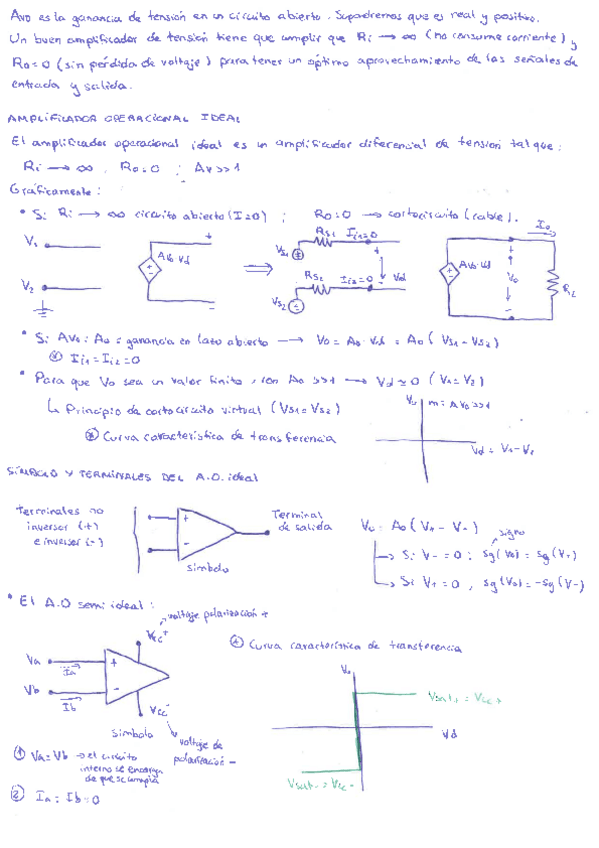 Avo es la ganancia de tensión en un circuito abierto. Supondremos que es real y positivo.
Un buen amplificador de tensión tiene que cumplir que Ri → ∞ (no consume corriente) y
Ro = 0 (sin pérdida de voltaje) para tener un óptimo aprovechamiento de las señales de
entrada y salida.
AMPLIFICADOR OPERACIONAL IDEAL
El amplificador operacional ideal es un amplificador diferencial de tensión tal que:
Ri → ∞ , Ro = 0 ; Av >> 1
Gráficamente:
• Si Ri → ∞ circuito abierto (I=0) ; Ro = 0 → cortocircuito (cable).
V1
V2
+
Avo·Vd
-
⇒
Vs1
Rs1
Ii1=0
Vs2
Rs2
Ii2=0
+
Vd
-
Avo·Vd
Io
+
Vo
-
RL
• Si Avo = Ao = ganancia en lazo abierto → Vo = Ao·Vd = Ao (Vs1 - Vs2)
Ii1 = Ii2 = 0
• Para que Vo sea un valor finito, con Ao >>1 → Vd ≃ 0 (V1 = V2)
↳ Principio de cortocircuito virtual (Vs1 = Vs2)
Curva característica de transferencia
Vo
m = Avo >> 1
Vd = V1 - V2
SÍMBOLO Y TERMINALES DEL A.O. ideal
terminales no
inversor (+)
e inversor (-)
+
-
Terminal
de salida
símbolo
Vo = Ao (V+ - V-)
signo
→ Si V- = 0 ; sg(Vo) = sg(V+)
→ Si V+ = 0 , sg(Vo) = -sg(V-)
• El A.O semiideal:
voltaje polarización +
Vcc+
Va
Ia
Vb
Ib
+
-
Vcc-
símbolo
voltaje de
polarización -
Curva característica de transferencia
Vo
Vsat+ = Vcc+
Vd
Vsat- = Vcc-
① Va = Vb → el circuito
interno se encarga
de que se cumpla
② Ia = Ib = 0